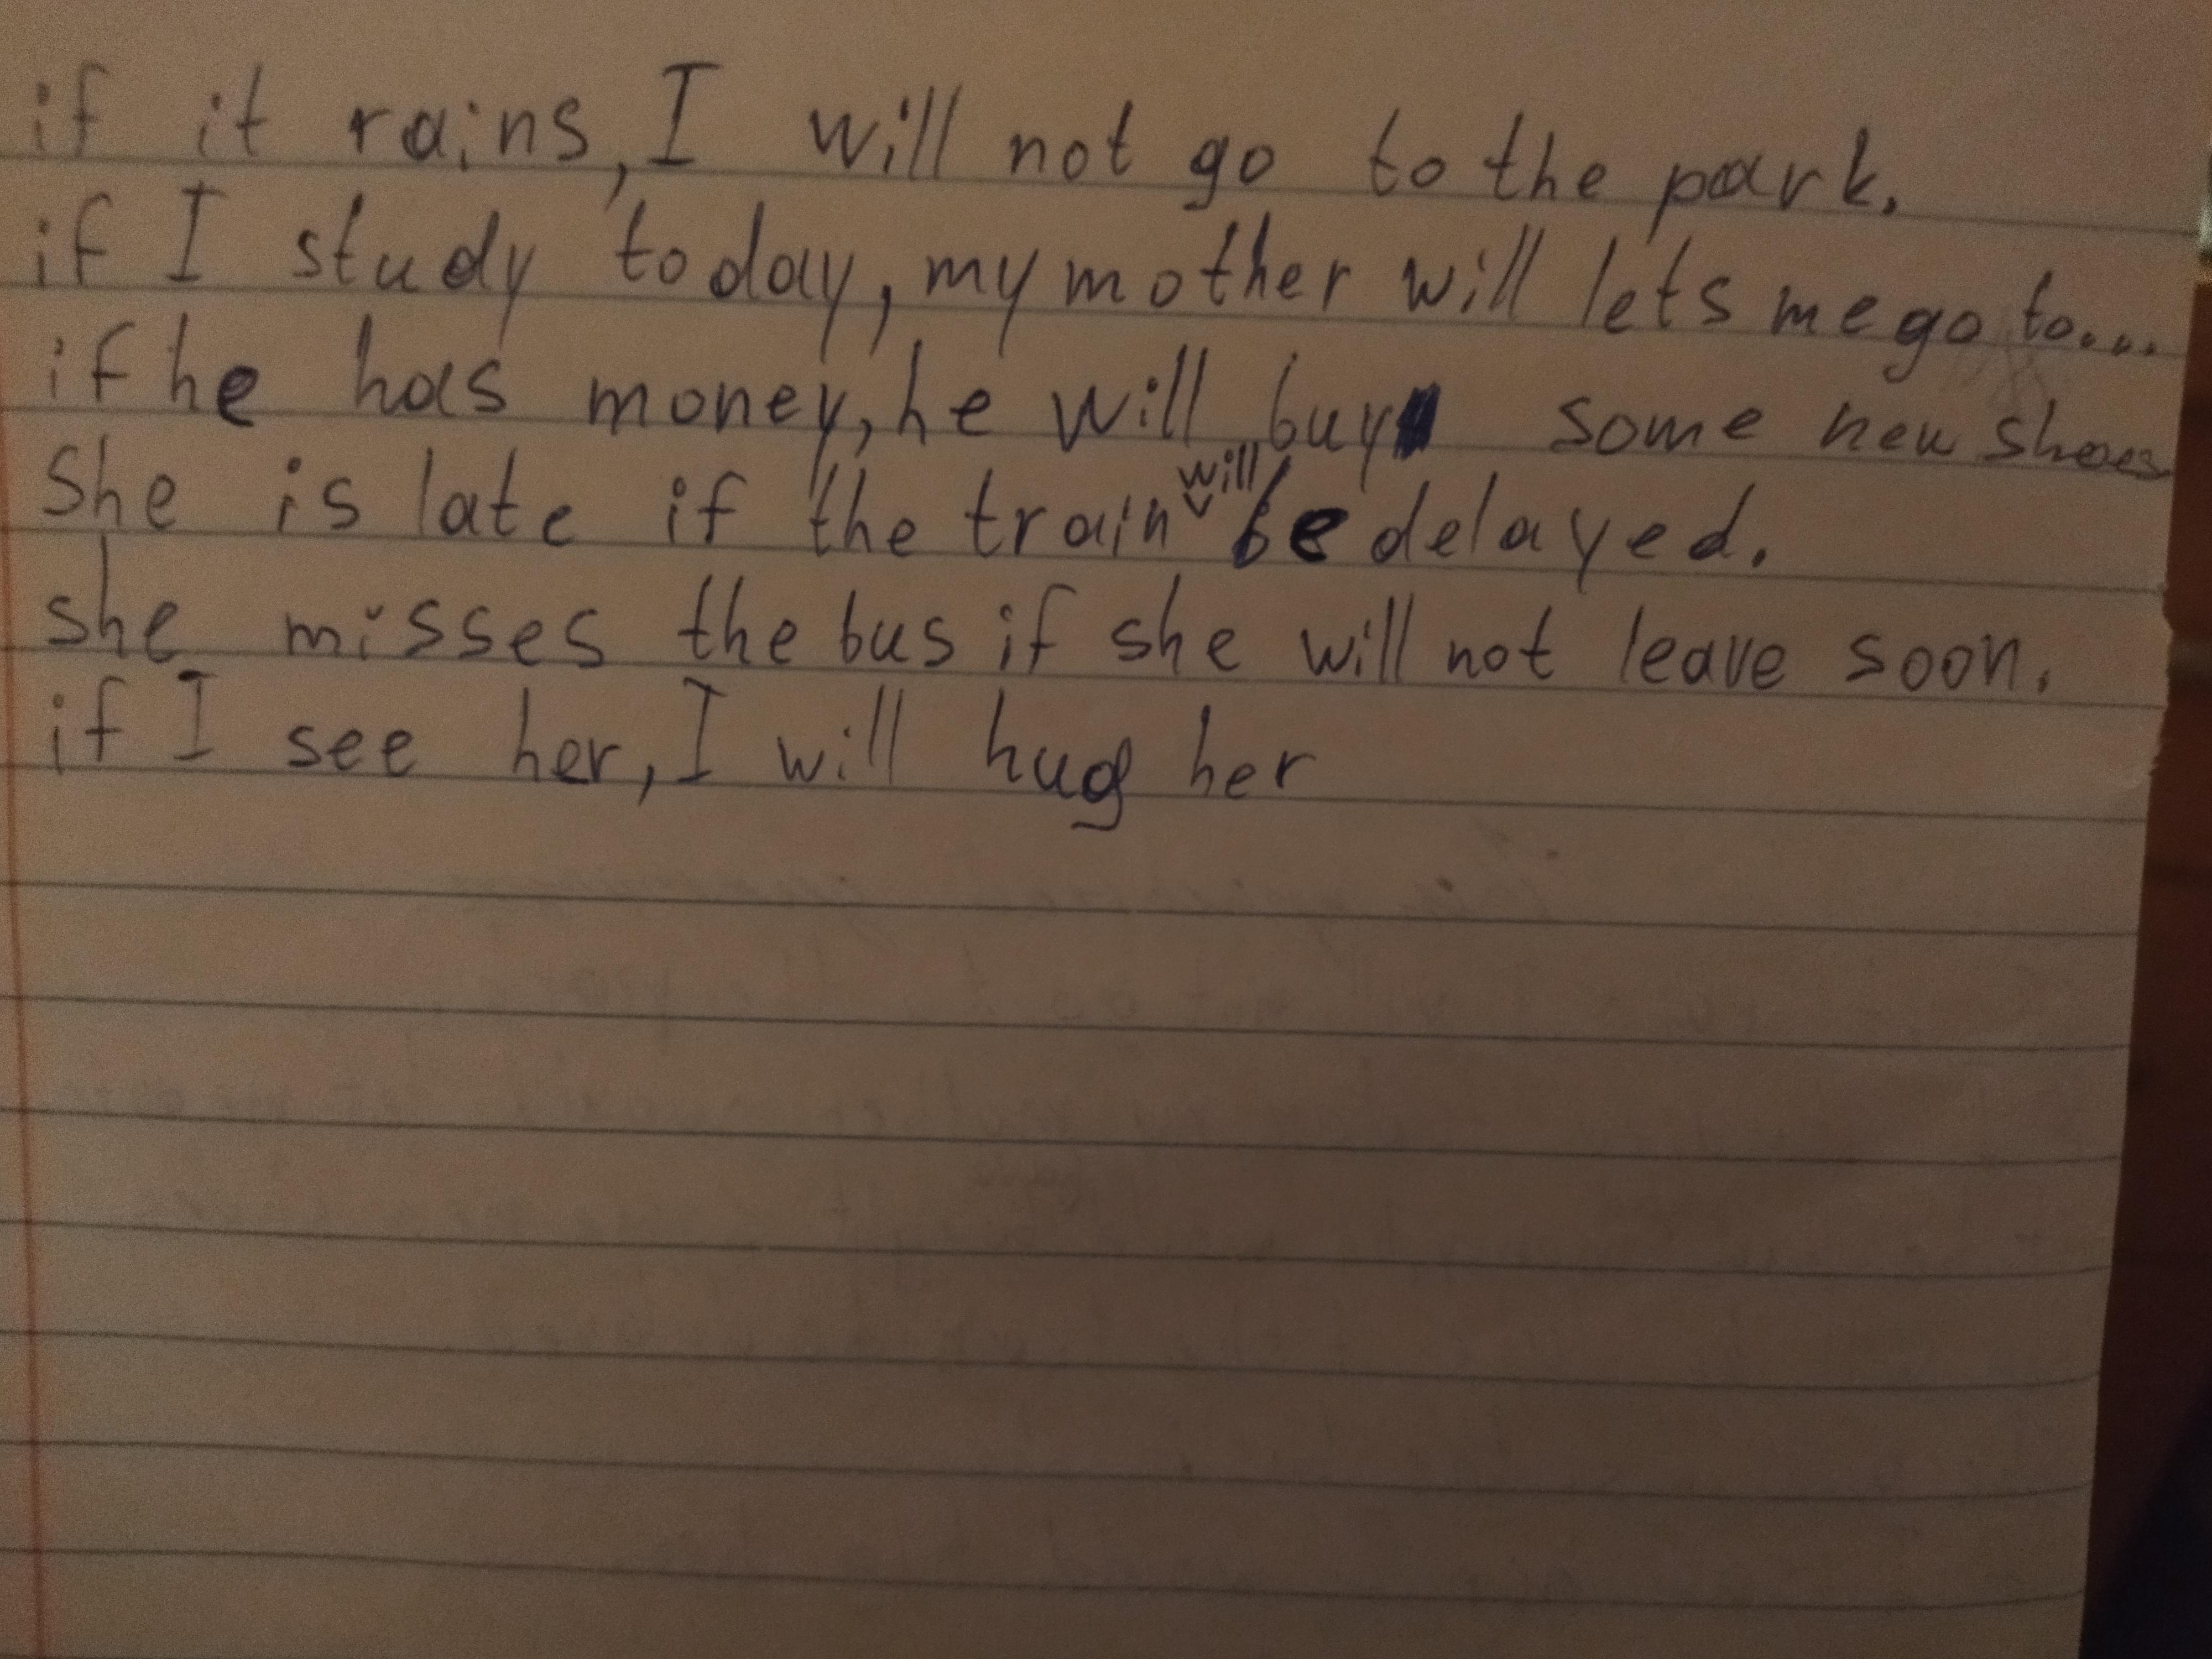 if it rains, I will not go to the park.
if I study today, my mother will lets me go to...
if he has money, he will buy some new shoes
She is late if the train will be delayed.
she misses the bus if she will not leave soon.
if I see her, I will hug her